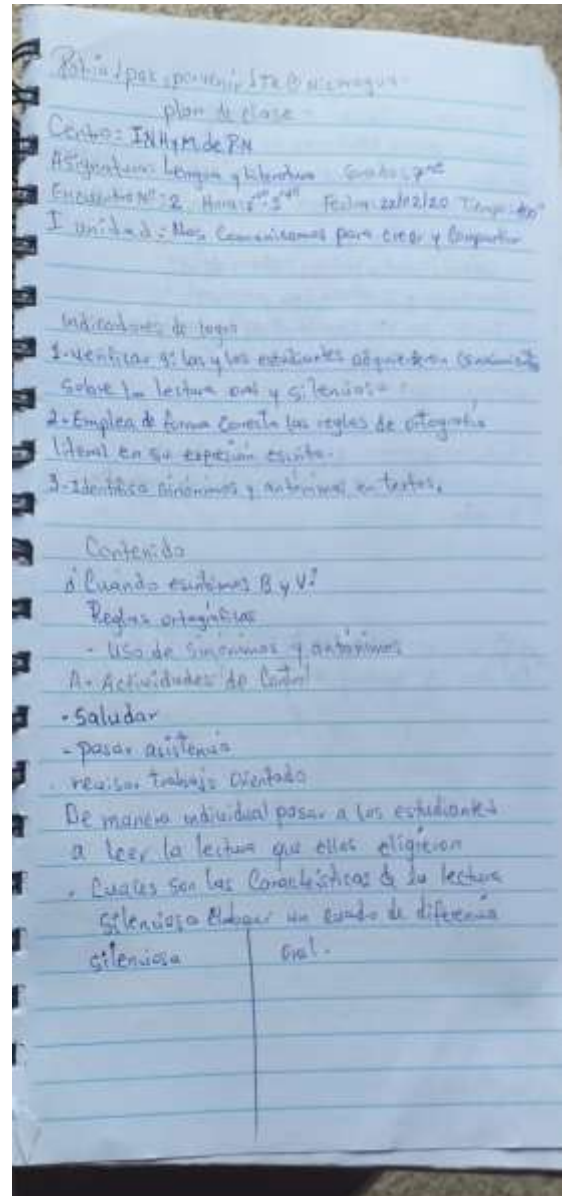 plan de clase -
Centro: INHyM de RN
Asignatura: Lengua y Literatura Grado: 7mo
Encuentro N°: 2 Hora: Fecha: 22/02/20 Tiempo:
I unidad: Nos Comunicamos para crear y Compartir
indicadores de logro
1-verificar si las y los estudiantes
sobre la lectura oral y silenciosa.
2-Emplea de forma correcta las reglas de ortografía
literal en su expresión escrita.
3-Identifica sinónimos y antónimos en textos.
Contenido
¿Cuándo escribimos B y V?
Reglas ortográficas
- Uso de sinónimos y antónimos
A- Actividades de Control
-Saludar
-pasar asistencia
revisar trabajo orientado
De manera individual pasar a los estudiantes
a leer la lectura que ellos eligieron
. Cuales son las Características de la lectura
silenciosa Elaborar un cuadro de diferencia
silenciosa oral.